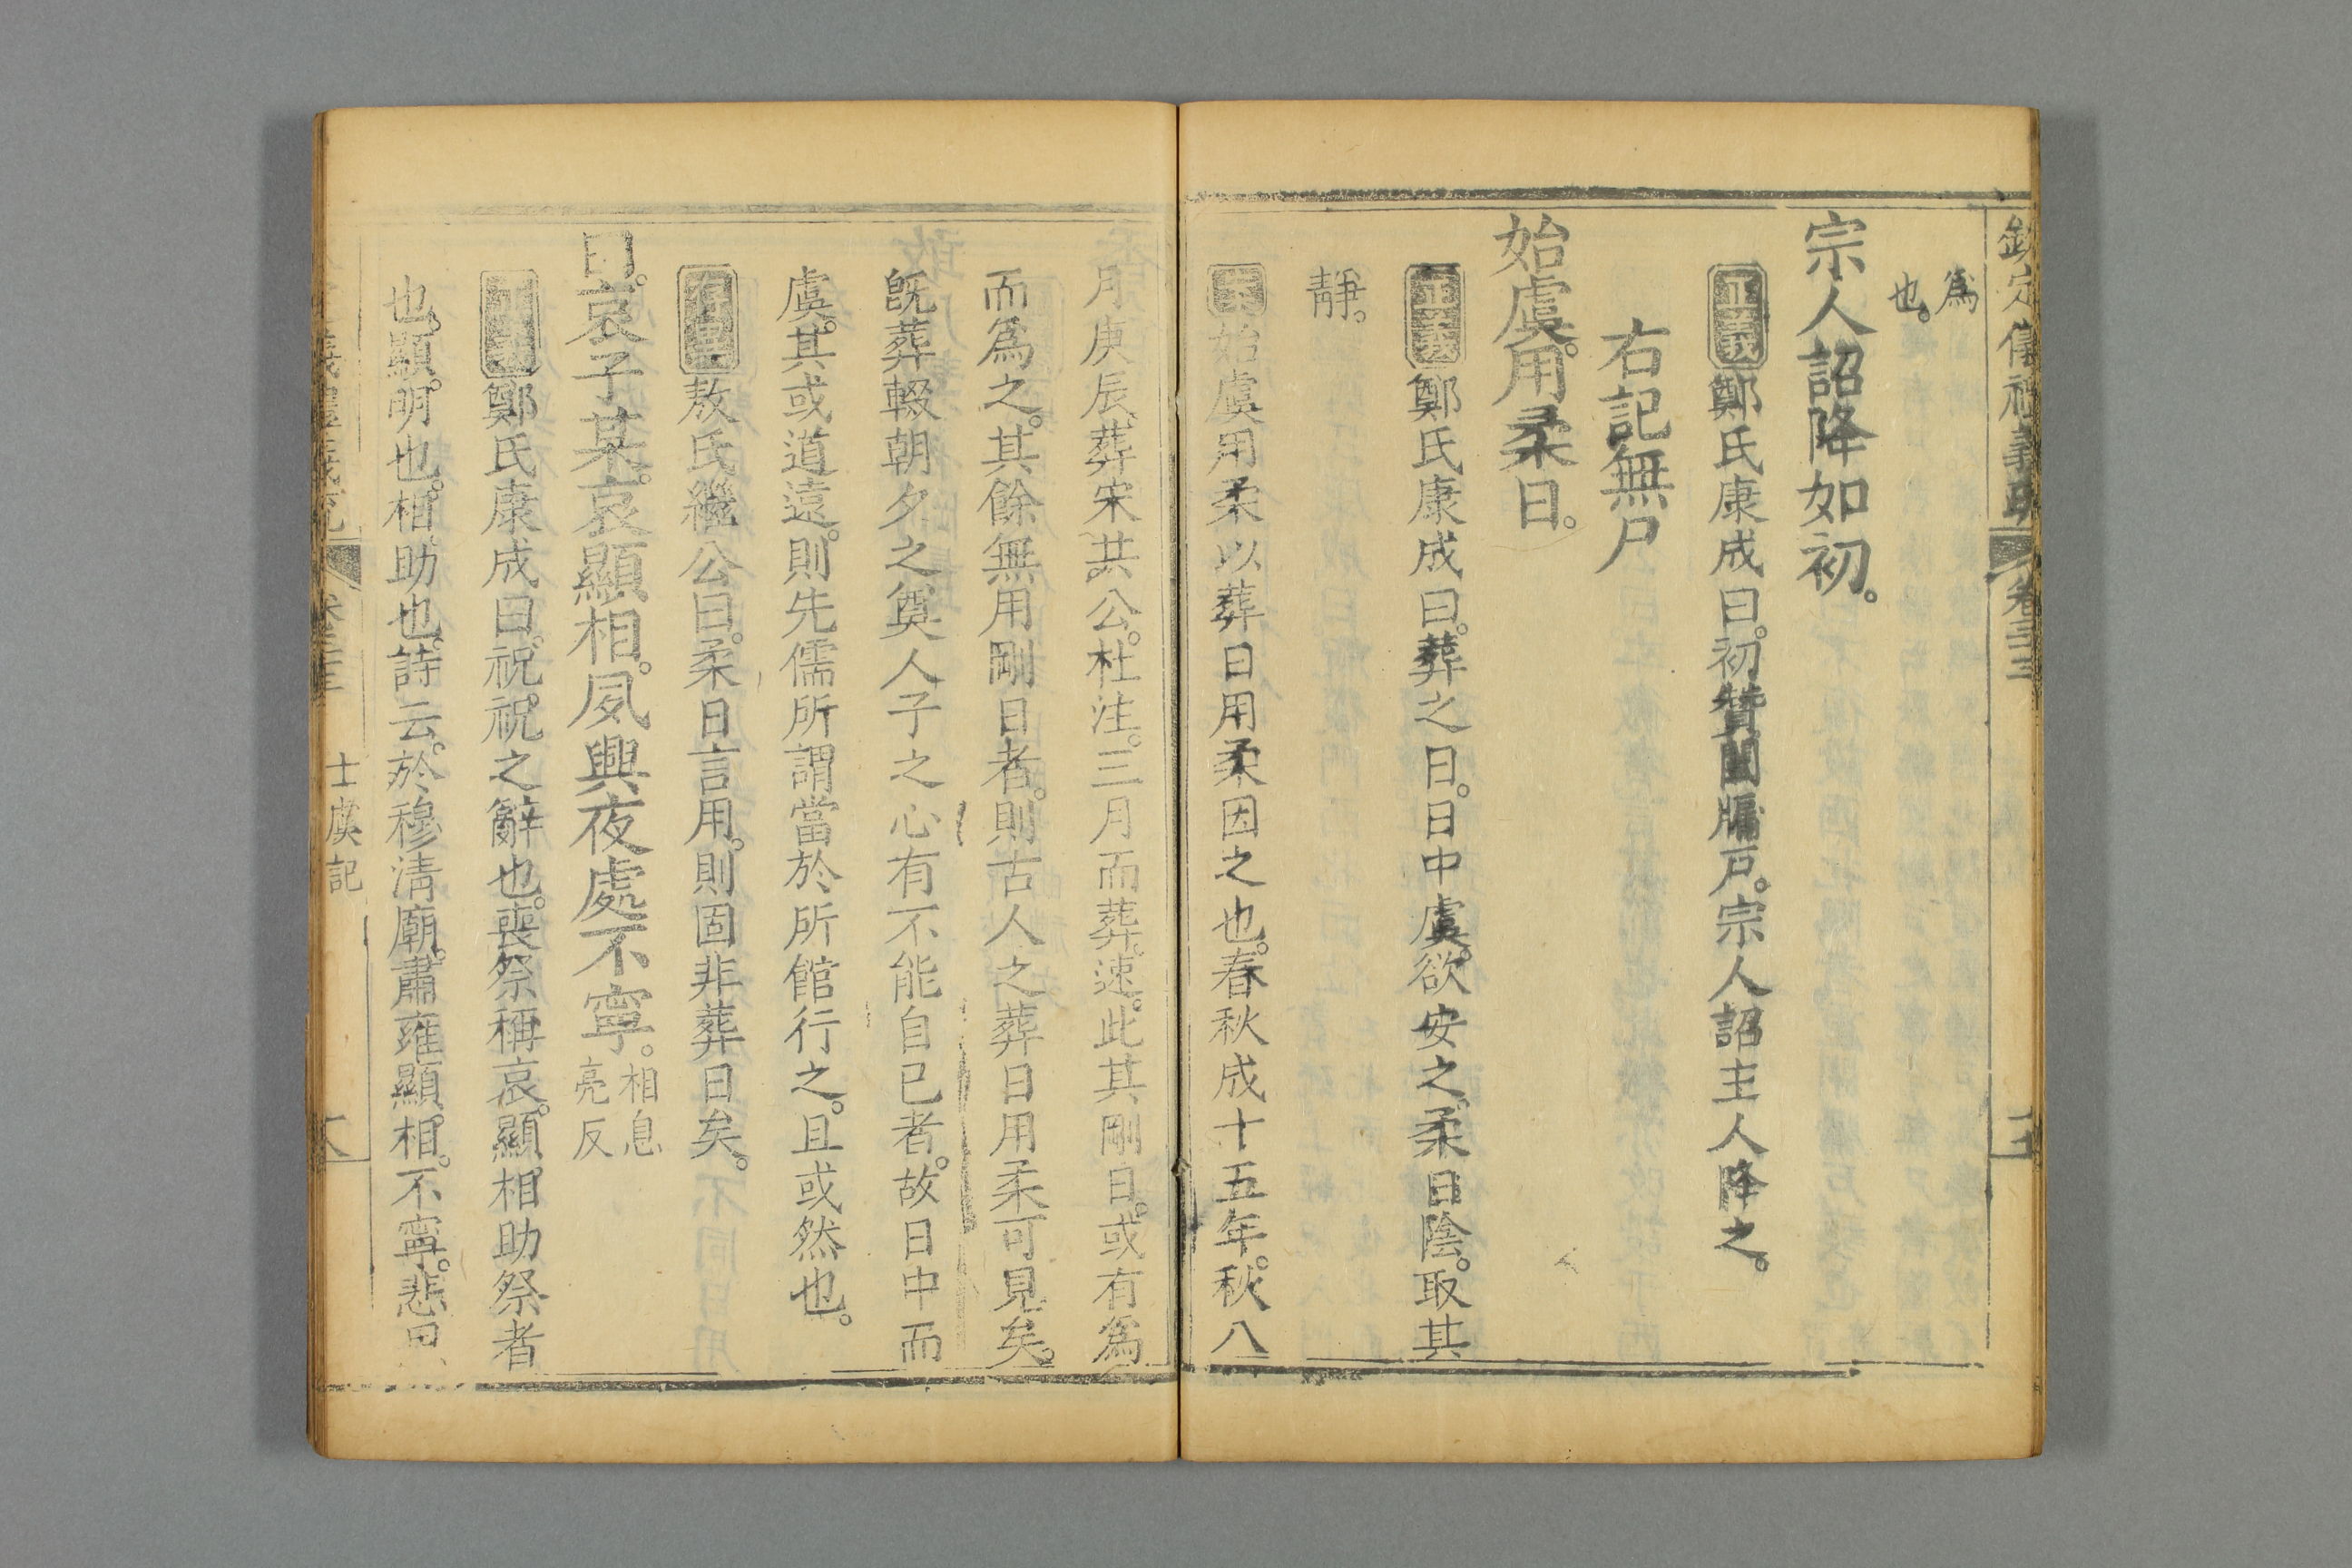 欽定儀禮義疏 卷三十三
爲
也。
宗人詔降如初。
正義鄭氏康成曰。初贊闔牖戸。宗人詔主人降之。
右記無尸
始虞。用柔日。
正義鄭氏康成曰。葬之日。日中虞。欲安之。柔日陰。取其
靜。
始虞用柔以葬日用柔因之也。春秋成十五年。秋八
月庚辰。葬宋共公。杜注。三月而葬。速。此其剛日。或有爲
而爲之。其餘無用剛日者。則古人之葬日用柔可見矣。
旣葬輟朝夕之奠人子之心有不能自已者。故日中而
虞。其或道遠。則先儒所謂當於所館行之。且或然也。
存異敖氏繼公曰。柔日言用。則固非葬日矣。
曰。哀子某。哀顯相。夙興夜處不寧。相息亮反
正義鄭氏康成曰。祝。祝之辭也。喪祭稱哀。顯相助祭者
也。顯。明也。相。助也。詩云。於穆淸廟。肅雍顯相。不寧。悲
儀禮義疏 卷三十三 士虞記